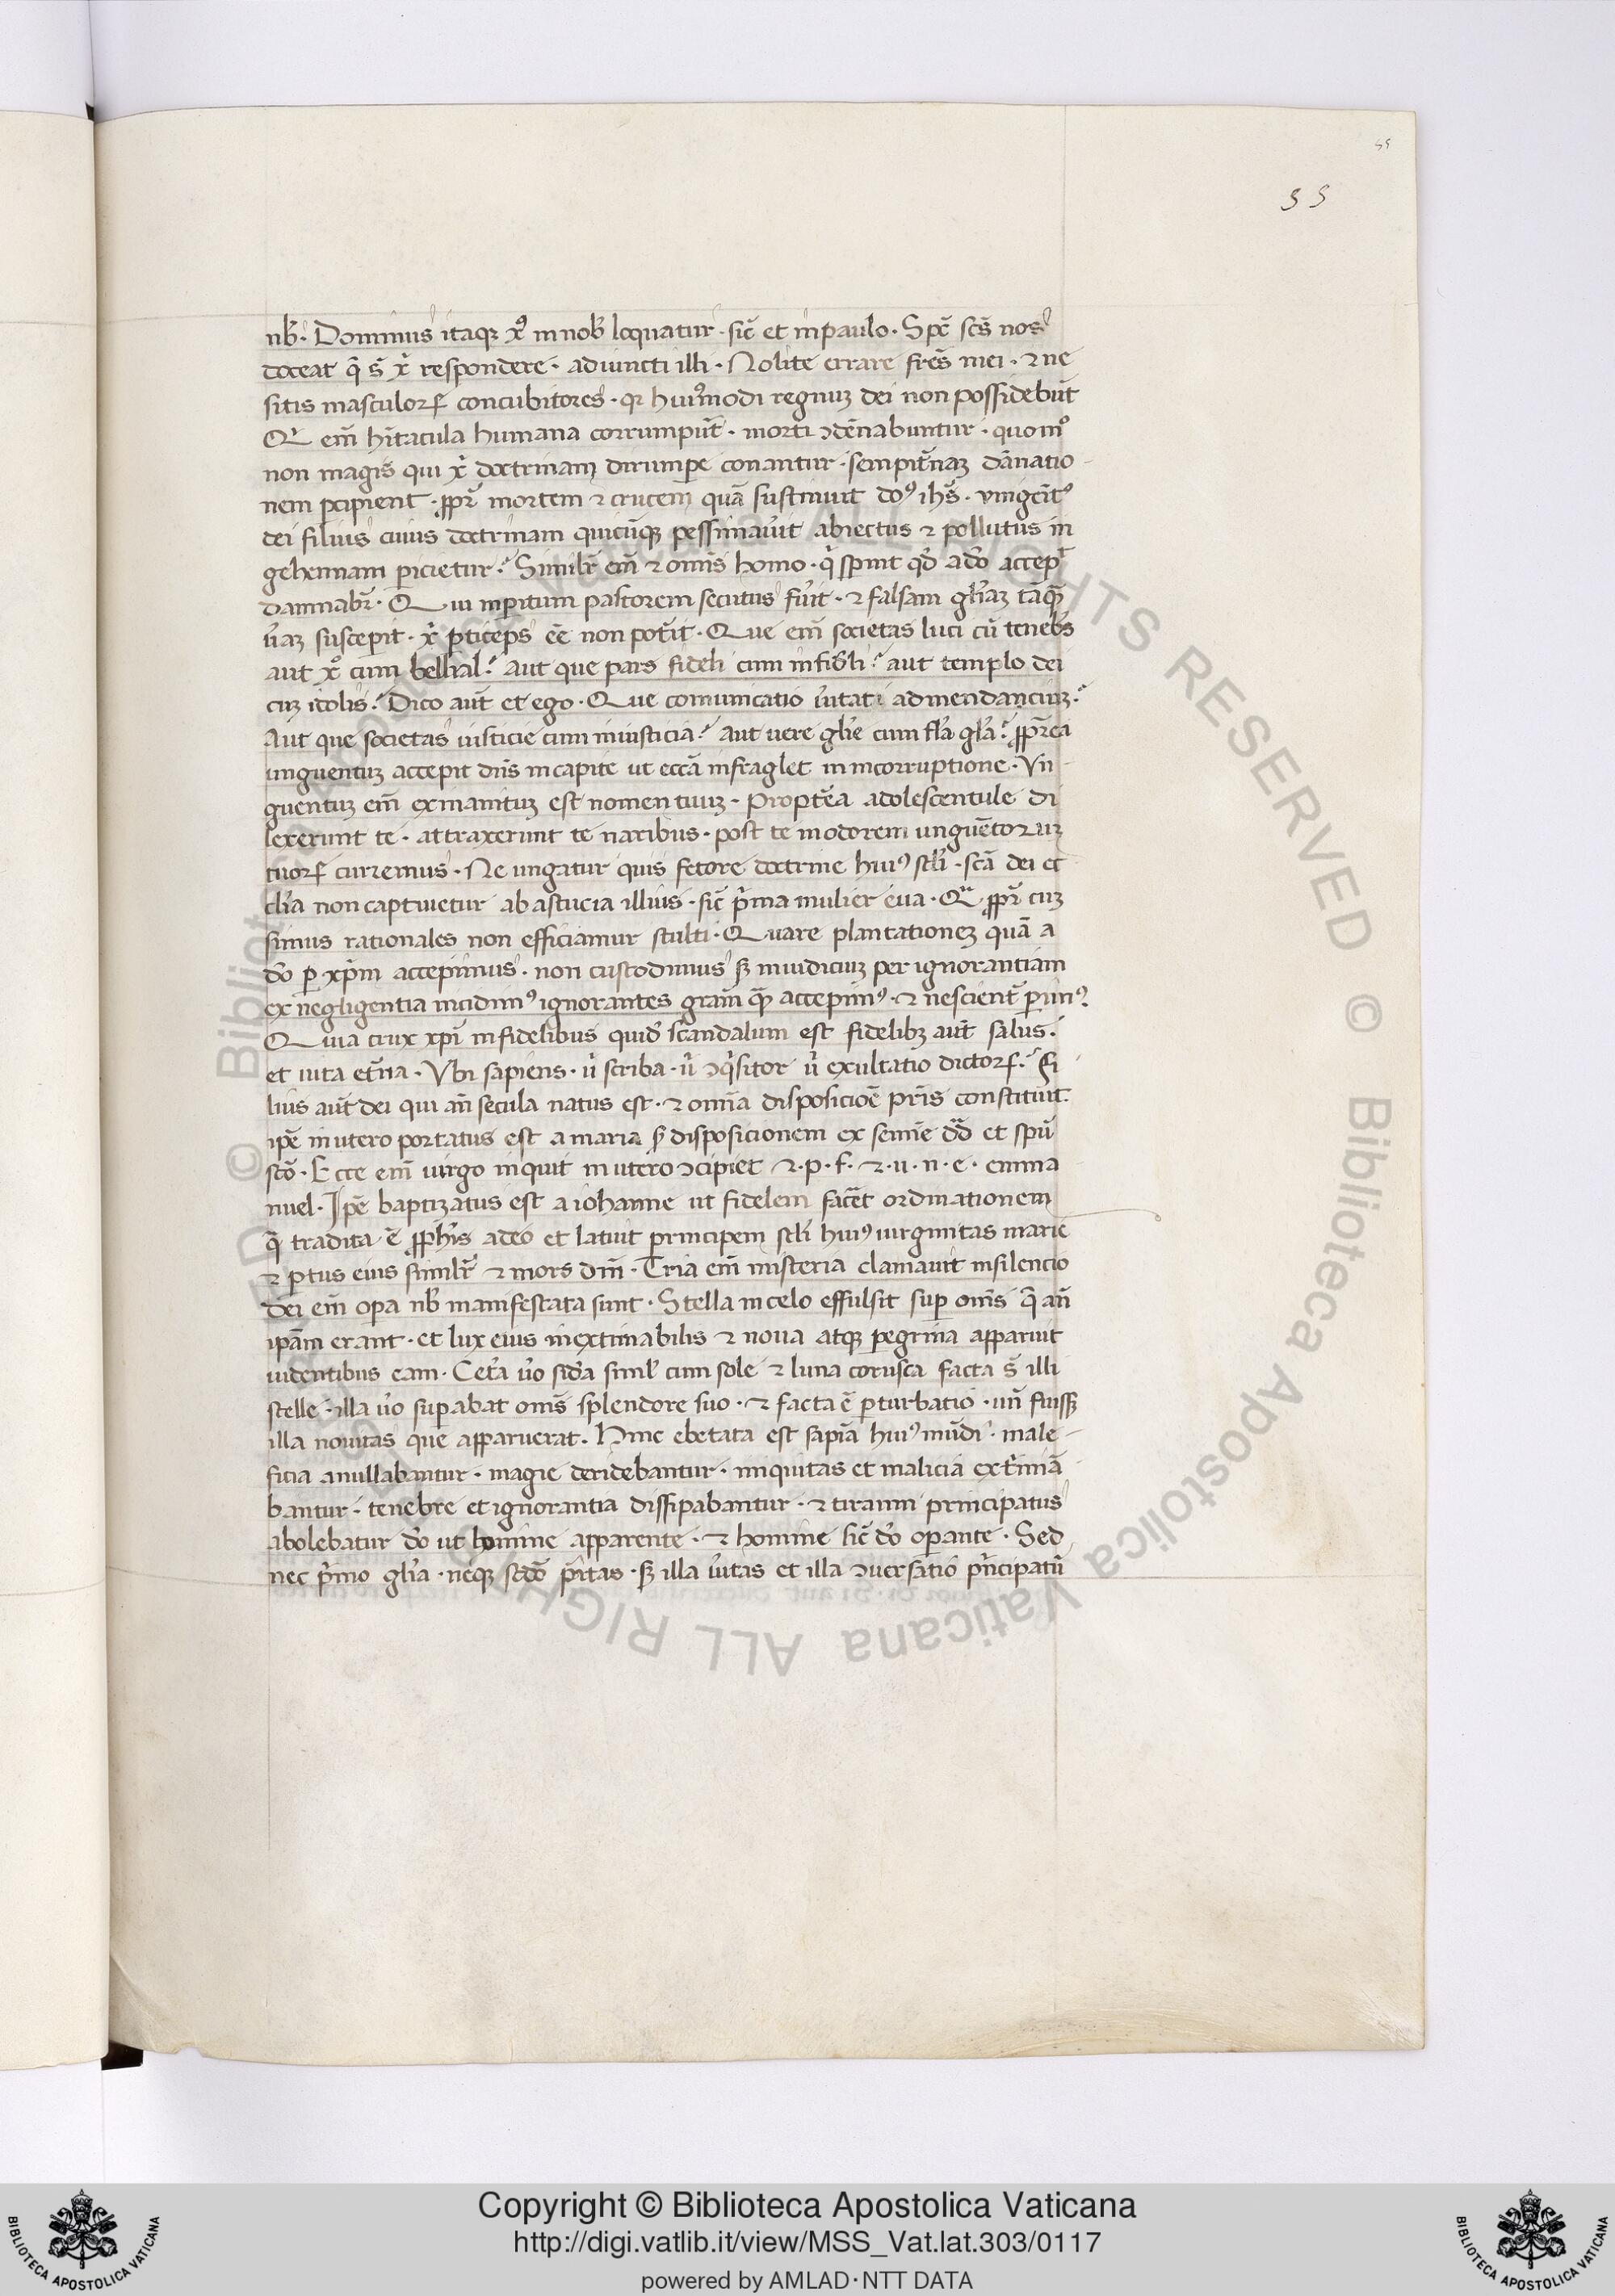 55
55
nb̄. Dominus itaqꝫ xꝰ in nob̄ loquatur. sic̄ et in paulo. Spc̄ scs̄ nos
doceat q̄ s̄t xp̄i respondere. adiuncti illi. Nolite errare frēs mei. ⁊ ne
sitis masculoꝝ concubitores. qꝛ huiꝰmodi regnuꝫ dei non possidebūt
Qi em̄ hītacula humana corrumpūt. morti ꝯdēnabuntur. quomō
non magis qui xp̄i doctrinam dirumpe conantur. sempit̄naꝫ dānatio-
nem ꝑcipient. ꝓpr̄ mortem ⁊ crucem quā sustinuit doꝰ ihs̄. vnigēitꝰ
dei filius cuius doctrinam quicūqꝫ pessimau̓it abiectus ⁊ pollutus in
gehennam ꝑicietur. Similr̄ em̄ ⁊ omīs homo. q̓ spernit qd̄ a dō accepit
damnabr̄. Qui inperitum pastorem secutus fūit. ⁊ falsam glīaꝫ tāqꝫ
u̓aꝫ suscepit. xp̄i ꝑticeps ēe non potīt. Que em̄ societas luci cū teneb̄s
aut xꝰ cum bellial. aut que pars fideli cum infid̄li. aut templo dei
cuꝫ idolis. Dico aūt et ego. Que comunicatio u̓itati ad mendaciuꝫ.
Aut que societas iusticie cum iniusticia. aut uere glīe cum fl̄a gl̄a. ꝓpr̄ea
unguentuꝫ accepit dn̄s in capite ut ecc̄a infraglet in incorruptione. Vn-
guentuꝫ em̄ exinanituꝫ est nomen tuuꝫ. propt̄ea adolescentule di
lexerunt te. attraxerunt te naribus. post te in odorem unguētoꝛuꝫ
tuoꝝ curremus. Ne ungatur quis fetore doctrine huiꝰ scl̄i. scā dei ec
cl̄ia non captiuetur ab astucia illius. sic̄ p̓ma mulier eua. Qr̄ ꝓpr̄ cuꝫ
simus rationales non efficiamur stulti. Quare plantationeꝫ quā a
dō ꝑ xp̄m accepimus. non custodimus sꝫ in iudiciuꝫ per ignorantiam
ex negligentia incidimꝰ ignorantes gram̄ quā accepimꝰ. ⁊ nescient̄ ꝑimꝰ
Quia crux xp̄i infidelibus quidē scandalum est fidelibꝫ aūt salus.
et uita et̄na. Vbi sapiens. u̓ scriba. u̓ ꝯq̓sitor u̓ exultatio dictoꝝ. Fi
lius aūt dei qui añ secula natus est. ⁊ omīa disposicioē pr̄is constituit.
ip̄e in utero portatus est a maria s̄ disposicionem ex semīe dd̄ et spū
scō. Ecce em̄ uirgo inquit in utero ꝯcipiet ⁊. p. f. ⁊. u. n. e. emma-
nuel. Ip̄e baptizatus est a iohanne ut fidelem facēt ordinationem
q̄ tradita ē ꝓph̓is adeo et latuit principem scl̄i huiꝰ uirginitas marie
⁊ ꝑtus eius similr̄ ⁊ mors dn̄i. Tria em̄ misteria clamauit in silencio
Dei em̄ oꝑa nb̄ manifestata sunt. Stella in celo effulsit suꝑ omīs q̄ añ
ipām erant. et lux eius inextimabilis ⁊ noua atqꝫ ꝑegrina apparuit
uidentibus eam. Cet̓a u̓o sid̓a simul̄ cum sole ⁊ luna corusca facta s̄t illi
stelle. illa u̓o suꝑabat omīs splendore suo. ⁊ facta ē ꝑturbatio. un̄ fuissꝫ
illa nouitas que apparuerat. Hinc ebetata est sapīa huiꝰ mūdi. male-
ficia anullabantur. magie deridebantur. iniquitas et malicia ext̓minā-
bantur. tenebre et ignorantia dissipabantur. ⁊ tiranni principatus
abolebatur dō ut homine apparente. ⁊ homine sic̄ dō oꝑante. Sed
nec p̓mo glīa. neqꝫ scdō p̄itas. sꝫ illa u̓itas et illa ꝯuersatio p̓ncipatū
Copyright © Biblioteca Apostolica Vaticana
http://digi.vatlib.it/view/MSS_Vat.lat.303/0117
powered by AMLAD·NTT DATA
BIBLIOTECA APOSTOLICA VATICANA
BIBLIOTECA APOSTOLICA VATICANA
© Biblioteca Apostolica Vaticana ALL RIGHTS RESERVED © Biblioteca Apostolica Vaticana ALL RIGHTS RESERVED